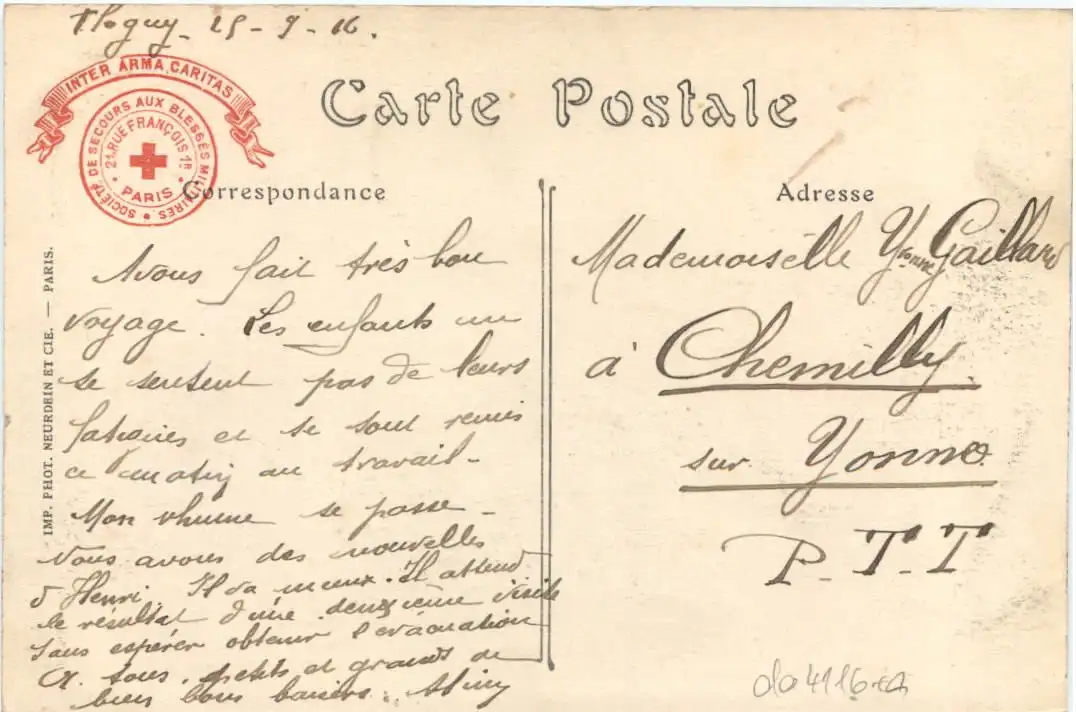 25-9-16.
INTER ARMA CARITAS
SOCIÉTÉ DE SECOURS AUX BLESSÉS MILITAIRES
21 RUE FRANÇOIS 1ER
PARIS
Carte Postale
Correspondance
Avons fait très bon
voyage. Les enfants ne
se sentent pas de leurs
fatigues et se sont remis
ce matin au travail-
Mon rhume se passe-
Nous avons des nouvelles
d'Henri. Il va mieux. Il attend
le résultat d'une deuxième visite
sans espérer obtenir l'évacuation
A tous, petits et grands de
bien bons baisers.
IMP. PHOT. NEURDEIN ET CIE. — PARIS.
Adresse
Mademoiselle Yvonne Gaillard
à Chemilly
sur Yonne
P.T.T